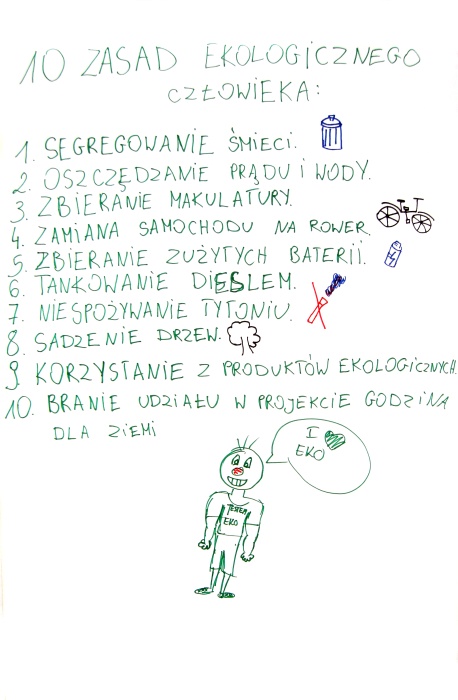 10 ZASAD EKOLOGICZNEGO
CZŁOWIEKA:
1. SEGREGOWANIE ŚMIECI.
2. OSZCZĘDZANIE PRĄDU I WODY.
3. ZBIERANIE MAKULATURY.
4. ZAMIANA SAMOCHODU NA ROWER.
5. ZBIERANIE ZUŻYTYCH BATERII.
6. TANKOWANIE DIESLEM.
7. NIESPOŻYWANIE TYTONIU.
8. SADZENIE DRZEW.
9. KORZYSTANIE Z PRODUKTÓW EKOLOGICZNYCH.
10. BRANIE UDZIAŁU W PROJEKCIE GODZINA
DLA ZIEMI
I
EKO
JESTEM
EKO